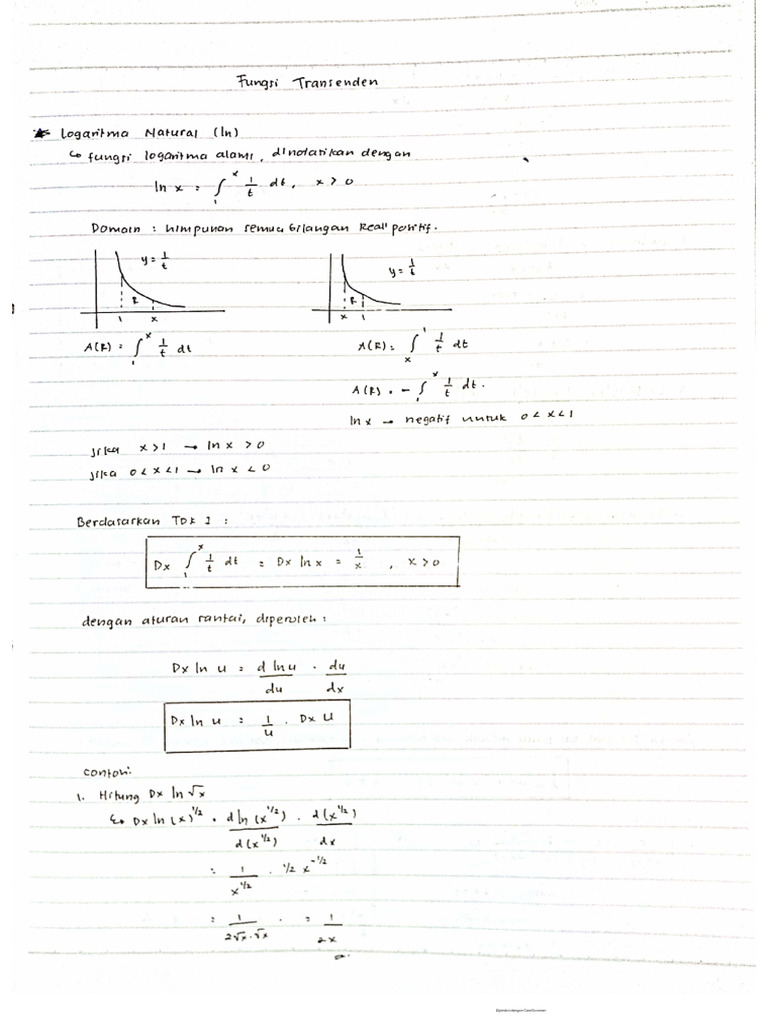 Fungsi Transenden
* Logaritma Natural (ln)
↳ fungsi logaritma alami, dinotasikan dengan
ln x = ∫₁ˣ 1/t dt, x > 0
Domain : himpunan semua bilangan Real positif.
y = 1/t
y = 1/t
R
R
1 x
x 1
A(R) = ∫₁ˣ 1/t dt
A(R) = ∫ₓ¹ 1/t dt
A(R) = - ∫₁ˣ 1/t dt.
ln x → negatif untuk 0 < x < 1
jika x > 1 → ln x > 0
jika 0 < x < 1 → ln x < 0
Berdasarkan TDK I :
Dx ∫₁ˣ 1/t dt = Dx ln x = 1/x , x > 0
dengan aturan rantai, diperoleh :
Dx ln u = d ln u/du . du/dx
Dx ln u = 1/u . Dx u
Contoh:
1. Hitung Dx ln √x
↳ Dx ln (x)^1/2 = d ln (x^1/2)/d(x^1/2) . d(x^1/2)/dx
= 1/x^1/2 . 1/2 x^-1/2
= 1/2√x.√x . = 1/2x
Dipindai dengan CamScanner